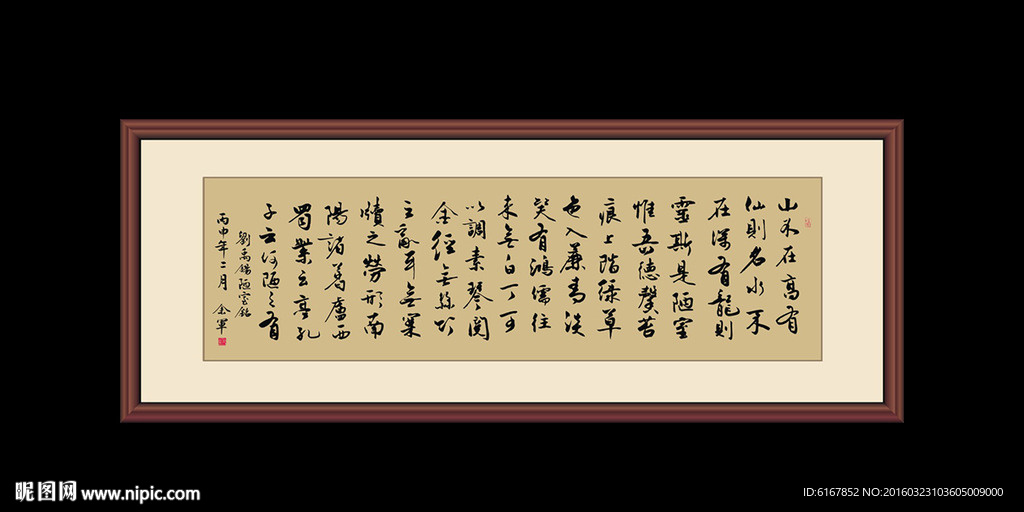 山不在高有
仙則名水不
在深有龍則
靈斯是陋室
惟吾德馨苔
痕上階綠草
色入簾青談
笑有鴻儒往
來無白丁可
以調素琴閱
金經無絲竹
之亂耳無案
牘之勞形南
陽諸葛廬西
蜀業云亭孔
子云何陋之有
劉禹錫陋室銘
丙申年二月 金軍
昵图网 www.nipic.com
ID:6167852 NO:20160323103605009000